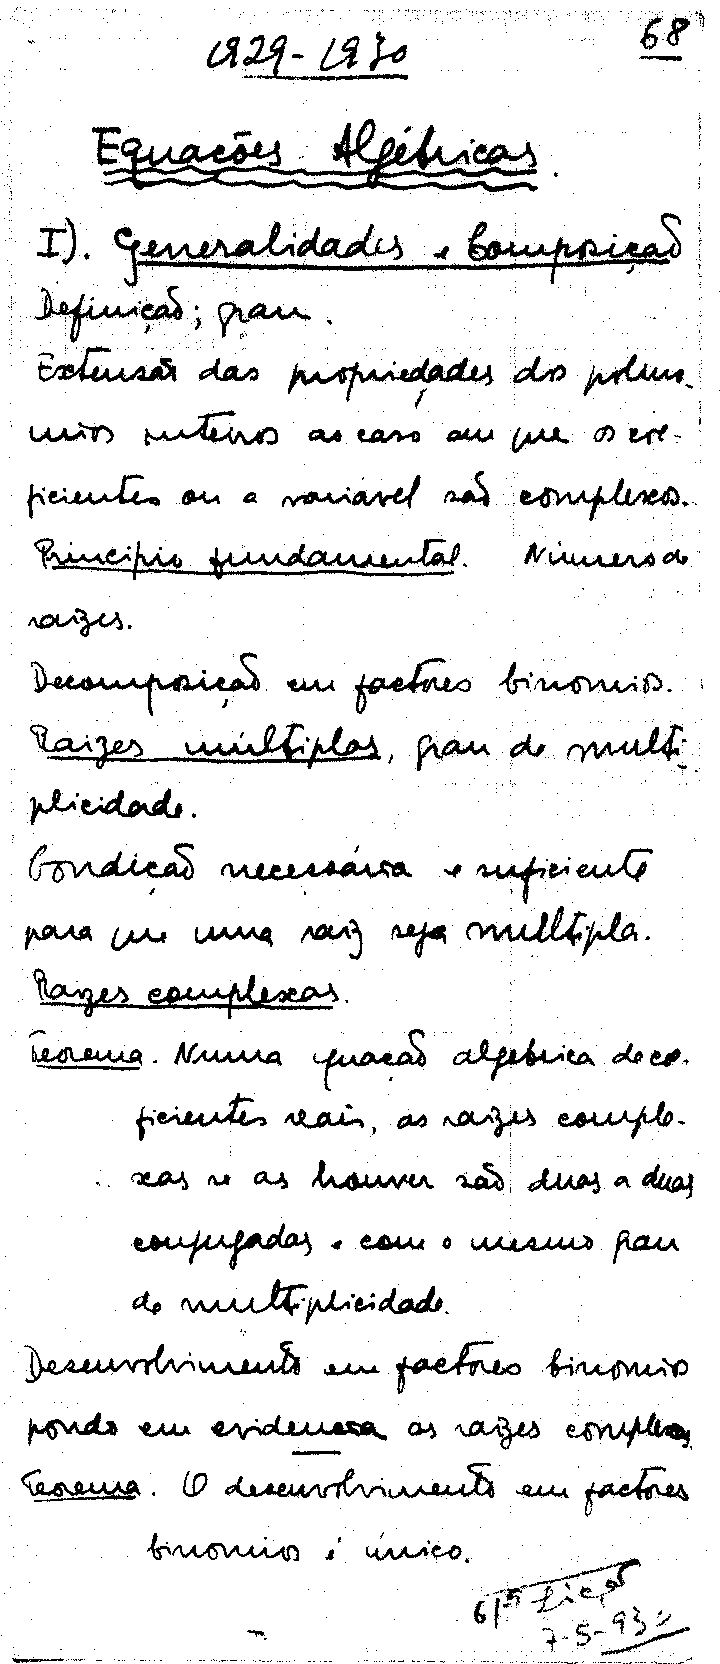 68
1929-1930
Equações Algébricas.
I). Generalidades e Composição
Definição; grau.
Extensão das propriedades dos polinó-
mios inteiros ao caso em que os coe-
ficientes ou a variável são complexos.
Princípio fundamental. Número de
raizes.
Decomposição em factores binomios.
Raizes múltiplas, grau de multi-
plicidade.
Condição necessária e suficiente
para que uma raiz seja multipla.
Raizes complexas.
Teorema. Numa equação algébrica de coe-
ficientes reais, as raizes comple-
xas se as houver são duas a duas
conjugadas e com o mesmo grau
de multiplicidade.
Desenvolvimento em factores binomios
pondo em evidencia as raizes complexas
Teorema. O desenvolvimento em factores
binomios é único.
61ª Lição
7-5-930